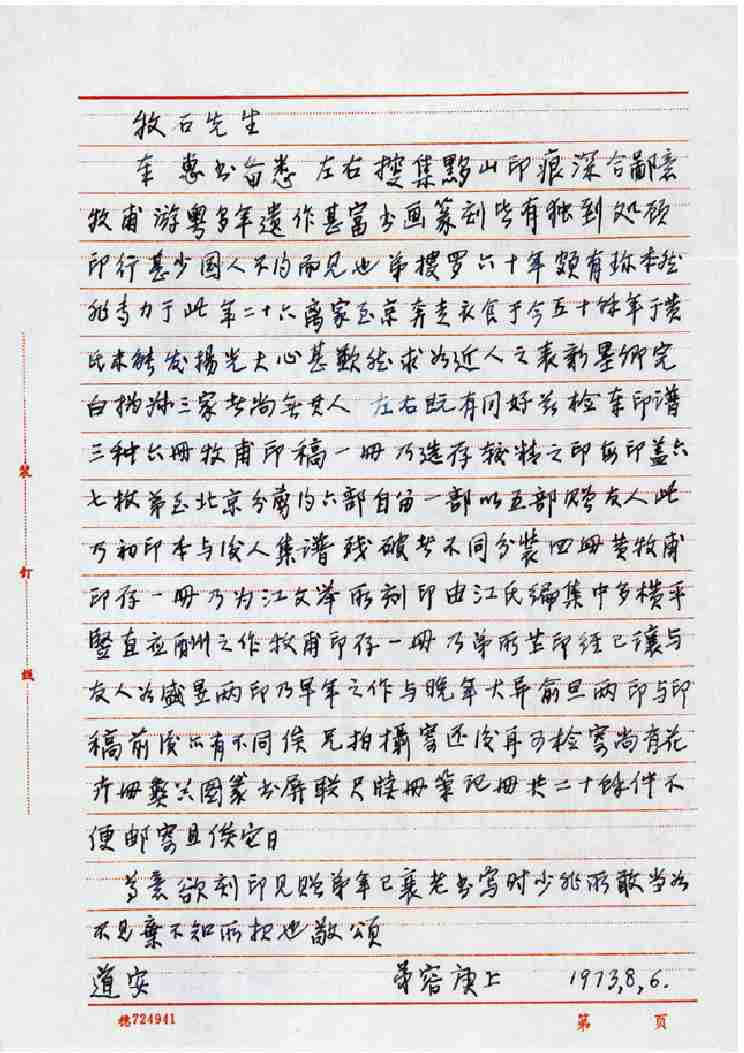 牧石先生
奉 惠书备悉 左右搜集黟山印痕深合鄙意
牧甫游粤多年遗作甚富书画篆刻皆有独到处顾
印行甚少国人不均而见也弟搜罗六十年颇有珍本然
非专力于此 年二十六离家至京奔走衣食于今五十馀年于黄
氏未能发扬光大心甚歉然求如近人之表彰墨卿完
白撝叔三家者尚无其人 左右既有同好兹检奉印谱
三种六册牧甫印稿一册乃选存较精之印每印盖六
七枚弟至北京分剪均六部自留一部以五部赠友人此
乃初印本与后人集谱残破者不同分装四册黄牧甫
印存一册乃为江文举所刻印由江氏编集中多横平
竖直应酬之作牧甫印存一册乃弟所其印经已让与
友人如盛昱两印乃早年之作与晚年大异俞旦两印与印
稿前后亦有不同俟 兄拍摄寄还后再可检寄尚有花
卉册彝器图篆书屏联尺牍册笔记册共二十馀件不
便邮寄且俟它日
尊意欲刻印见赠弟年已衰老书写时少非所敢当如
不见弃不知所报也敬颂
道安 弟容庚上 1973,8,6.
装
订
线
德724941 第 页